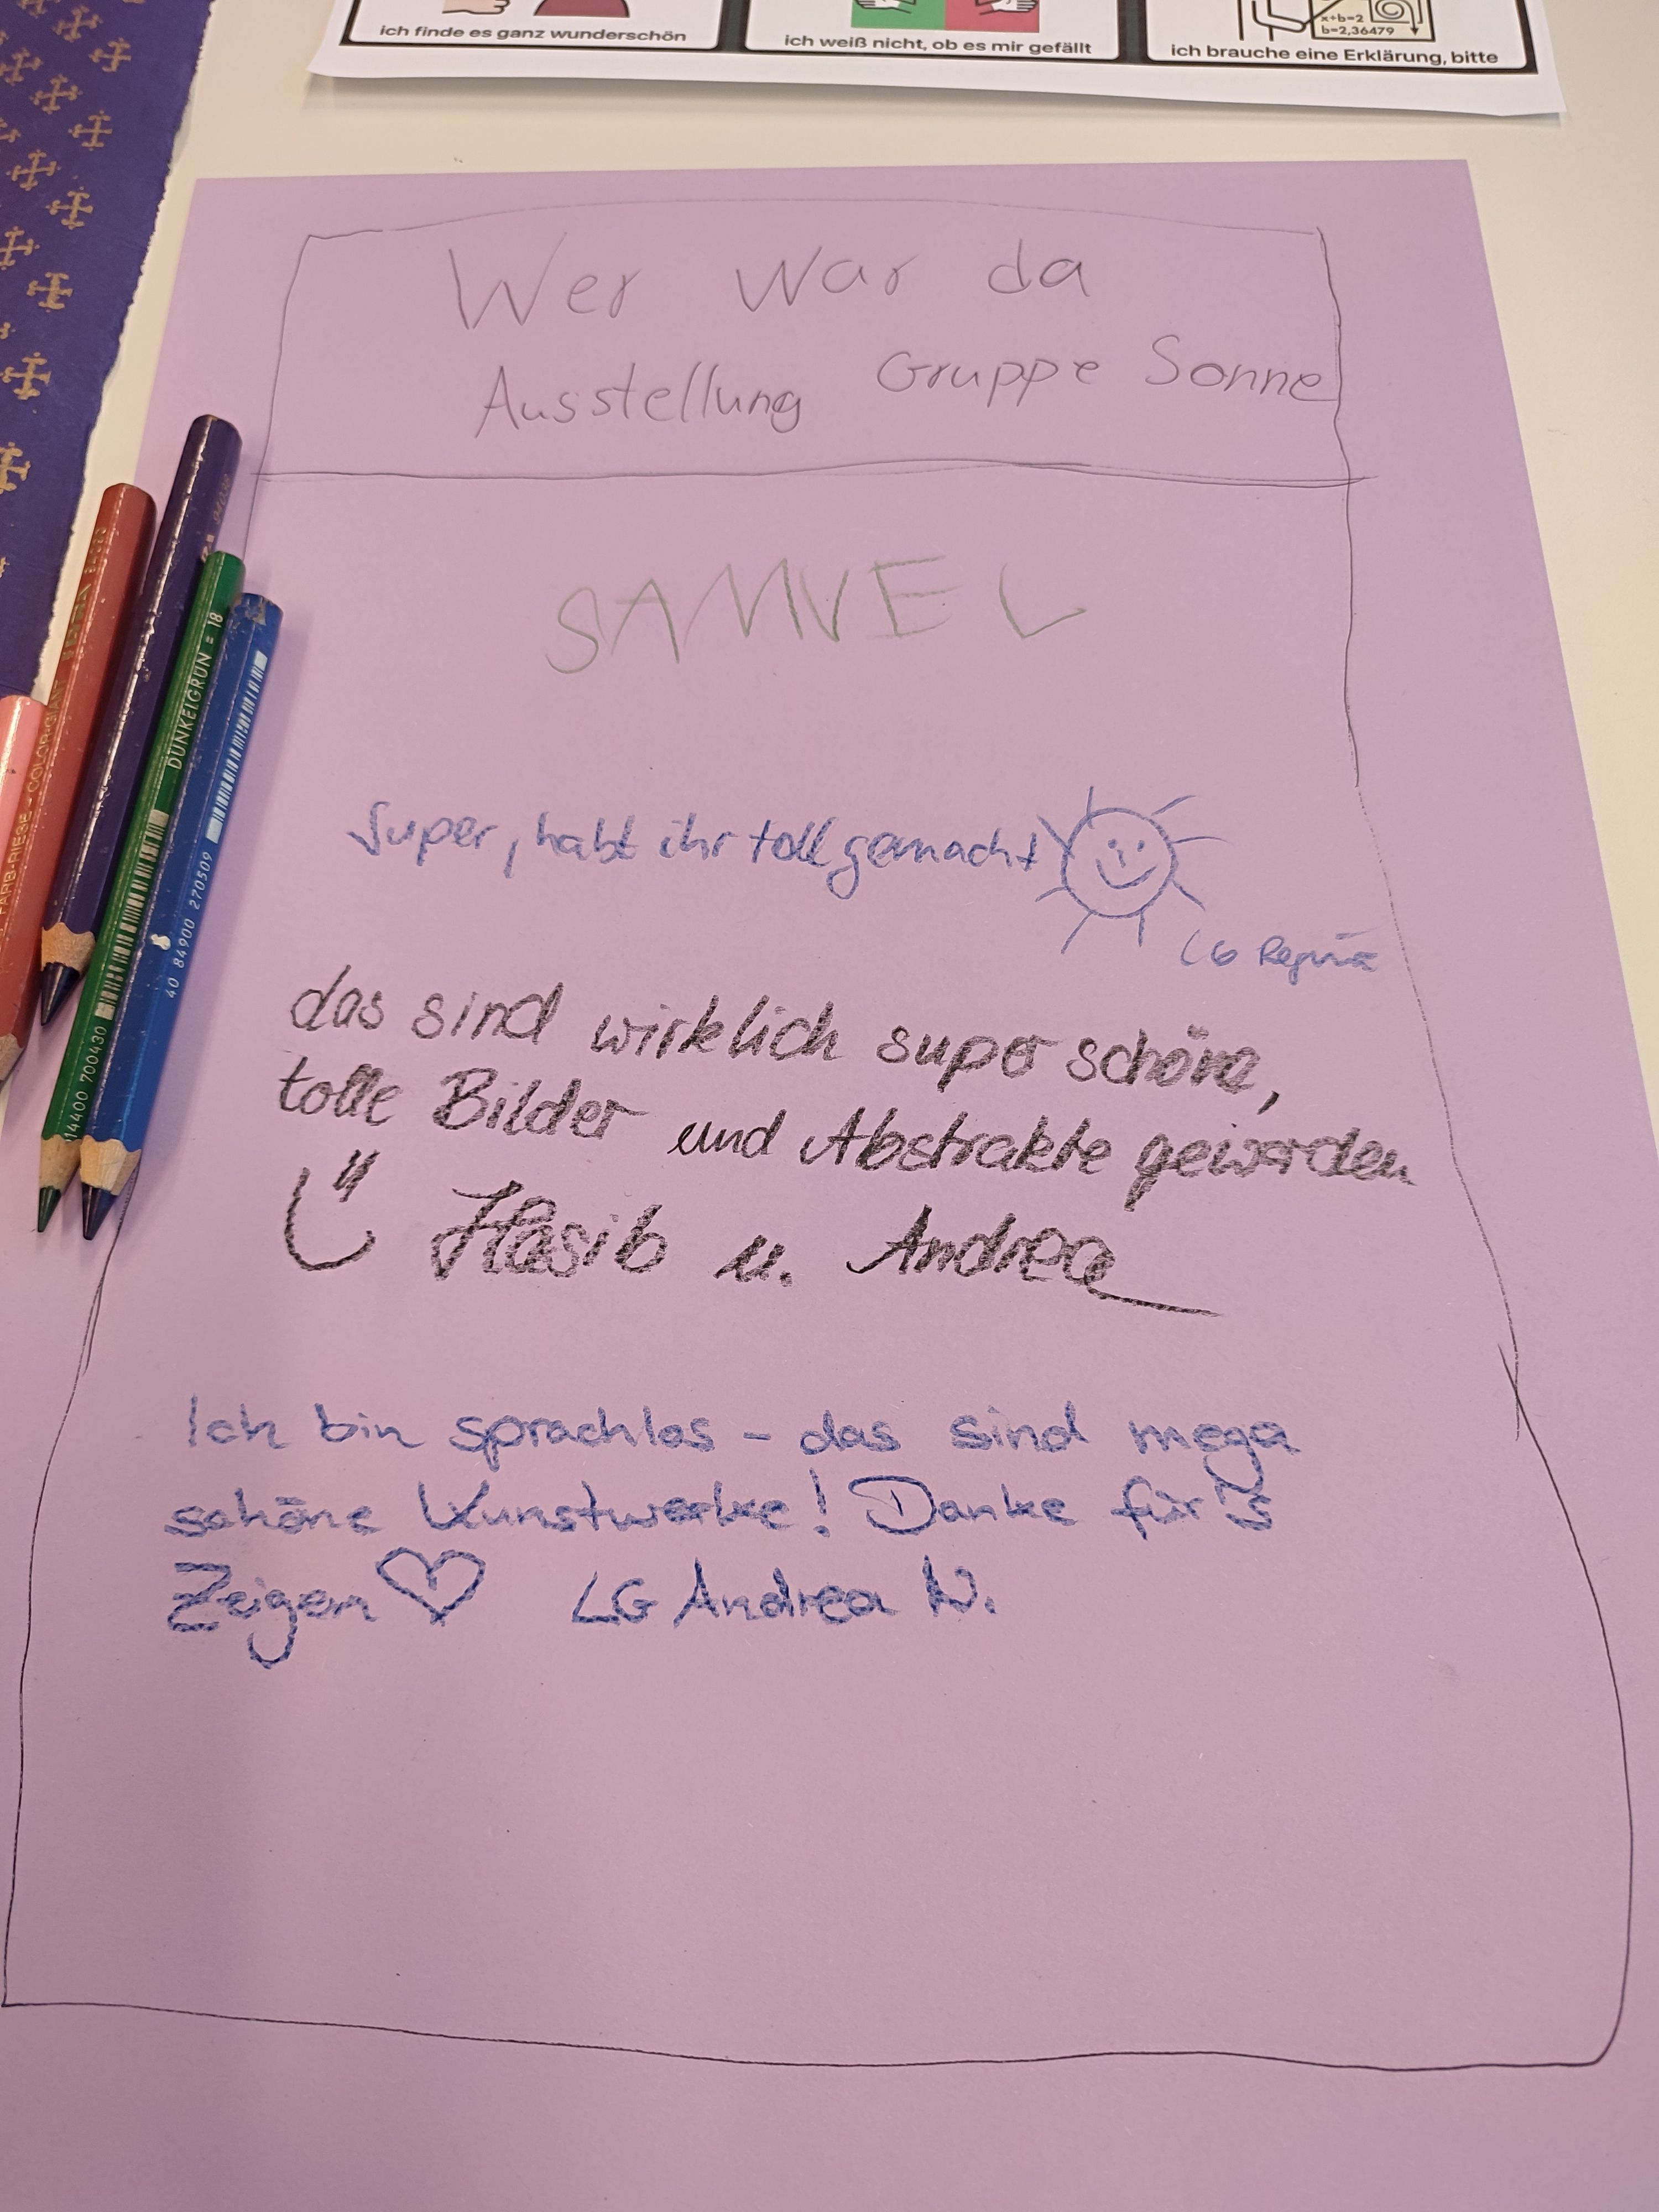 ich finde es ganz wunderschön
ich weiß nicht, ob es mir gefällt
x+b=2
b=2,36479
ich brauche eine Erklärung, bitte
Wer war da
Ausstellung Gruppe Sonne
SAMUEL
Super, habt ihr toll gemacht
LG Regina
das sind wirklich super schöne,
tolle Bilder und Abstrakte geworden
Hasib u. Andrea
Ich bin sprachlos - das sind mega
schöne Kunstwerke! Danke für's
Zeigen LG Andrea W.
DUNKELGRÜN = 18
14400 700430
40 84900 270509
FARB-RIESE - COLOR-GIANT